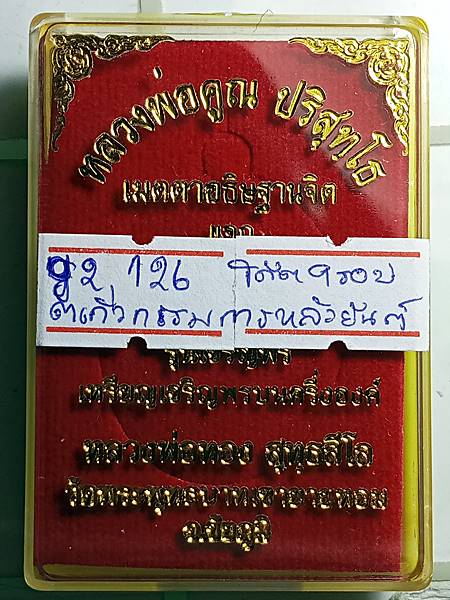 หลวงพ่อคูณ ปริสุทฺโธ
เมตตาอธิษฐานจิต
ชุ2 126 โค๊ต 9รอบ
ตะกั่วกรรมการหลังยันต์
รุ่นเจริญพร
เหรียญเจริญพรบนครึ่งองค์
หลวงพ่อทอง สุทฺธสีโล
วัดพระพุทธบาทเขายายหอม
จ.ชัยภูมิ